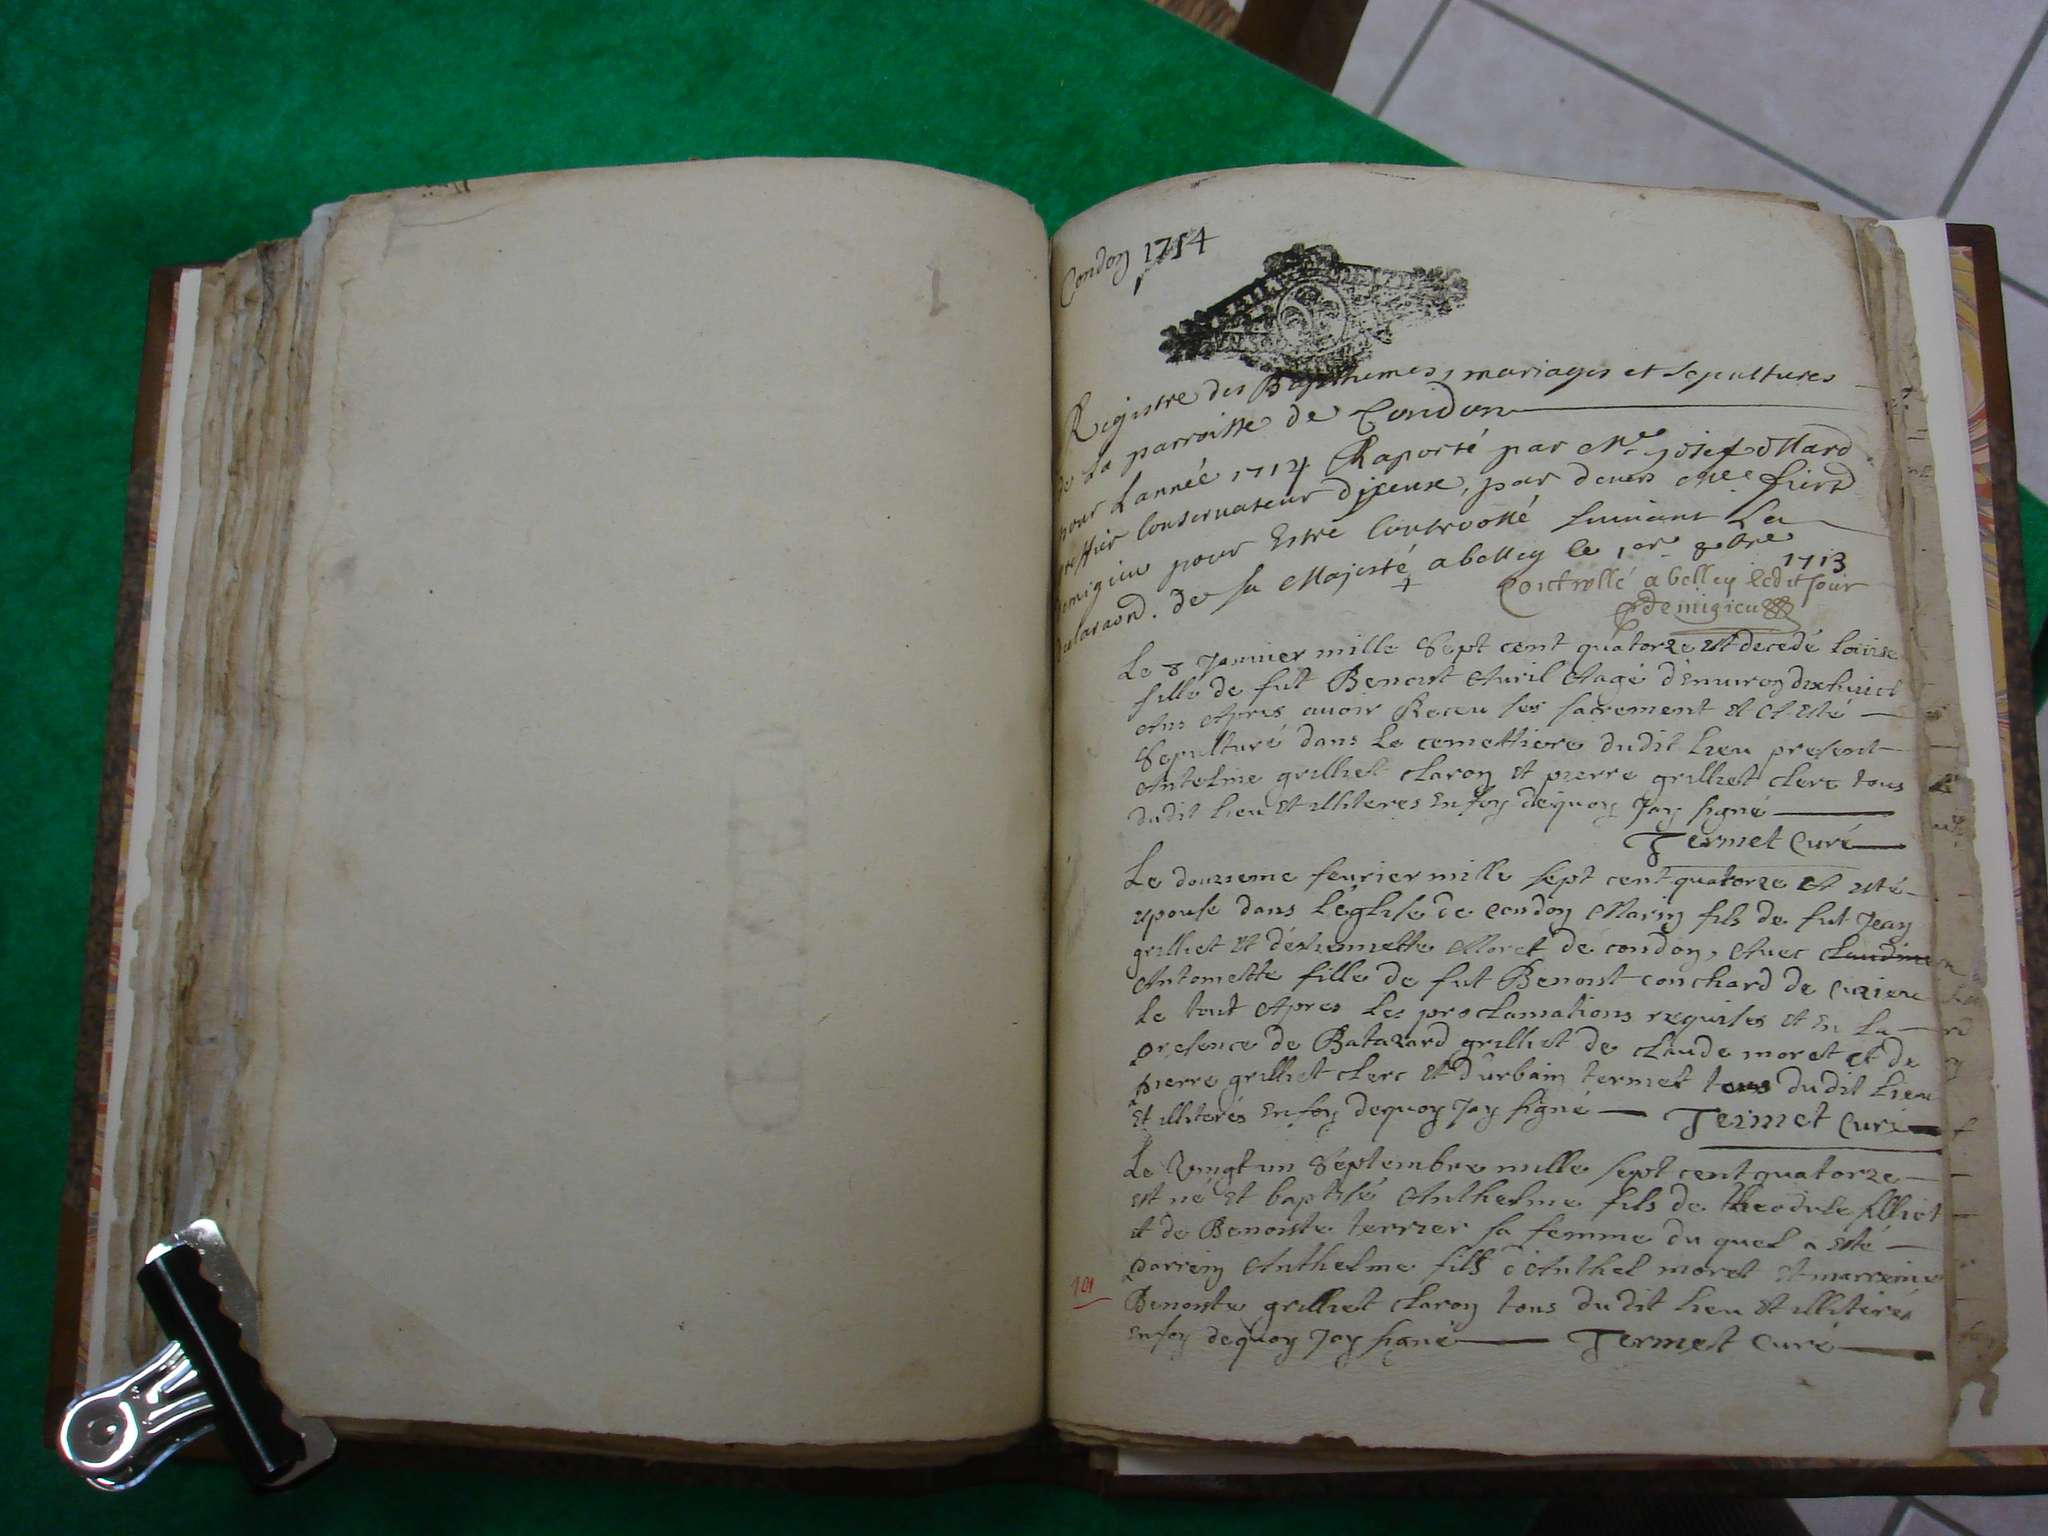 Condon 1714
Registre des Bapthemes, mariages et sepultures
de La parroisse de Condon
pour Lannée 1714 Raporté par Me josef Mard
greffier Conservateur diceux, par devers mre fierd
demigieu pour Estre Controollé suivant La
declaraon. de sa Majesté a belley le 1er 8bre 1713
Controllé a belley ledit Jour
demigieu
Le 8 Janvier mille Sept cent quatorze est decedé louise
fille de fut Benoist Avril Aagé d'Environ dixhuict
Ans Apres avoir Receu ses sacrement et A esté
Sepulturé dans Le cemettiere dudit Lieu present
Antelme grilliet claron et pierre grilliet clerc tous
dudit Lieu et illiteres En foy dequoy Jay signé
Termet Curé
Le douzieme fevrier mille sept cent quatorze A esté
epouse dans L'église de condon Marin fils de fut Jean
grilliet et d'estiennette Moret de condon, Avec claudine
Antoinette fille de fut Benoist conchard de Cuzieu
Le tout Apres Les proclamations requises et En La
presence de Batazard grilliet de claude moret et de
pierre grilliet clerc et d'urbain termet tous dudit Lieu
Et illiterés En foy dequoy Jay signé Termet Curé
Le Vingt un Septembre mille sept cent quatorze
est né et baptisé Anthelme fils de theodule filliet
et de Benoiste terrier sa femme du quel a esté
parrein Anthelme fils d'Anthel moret et marreine
101
Benoiste grilliet claron tous dudit Lieu et illiterés
En foy dequoy Jay signé Termet Curé